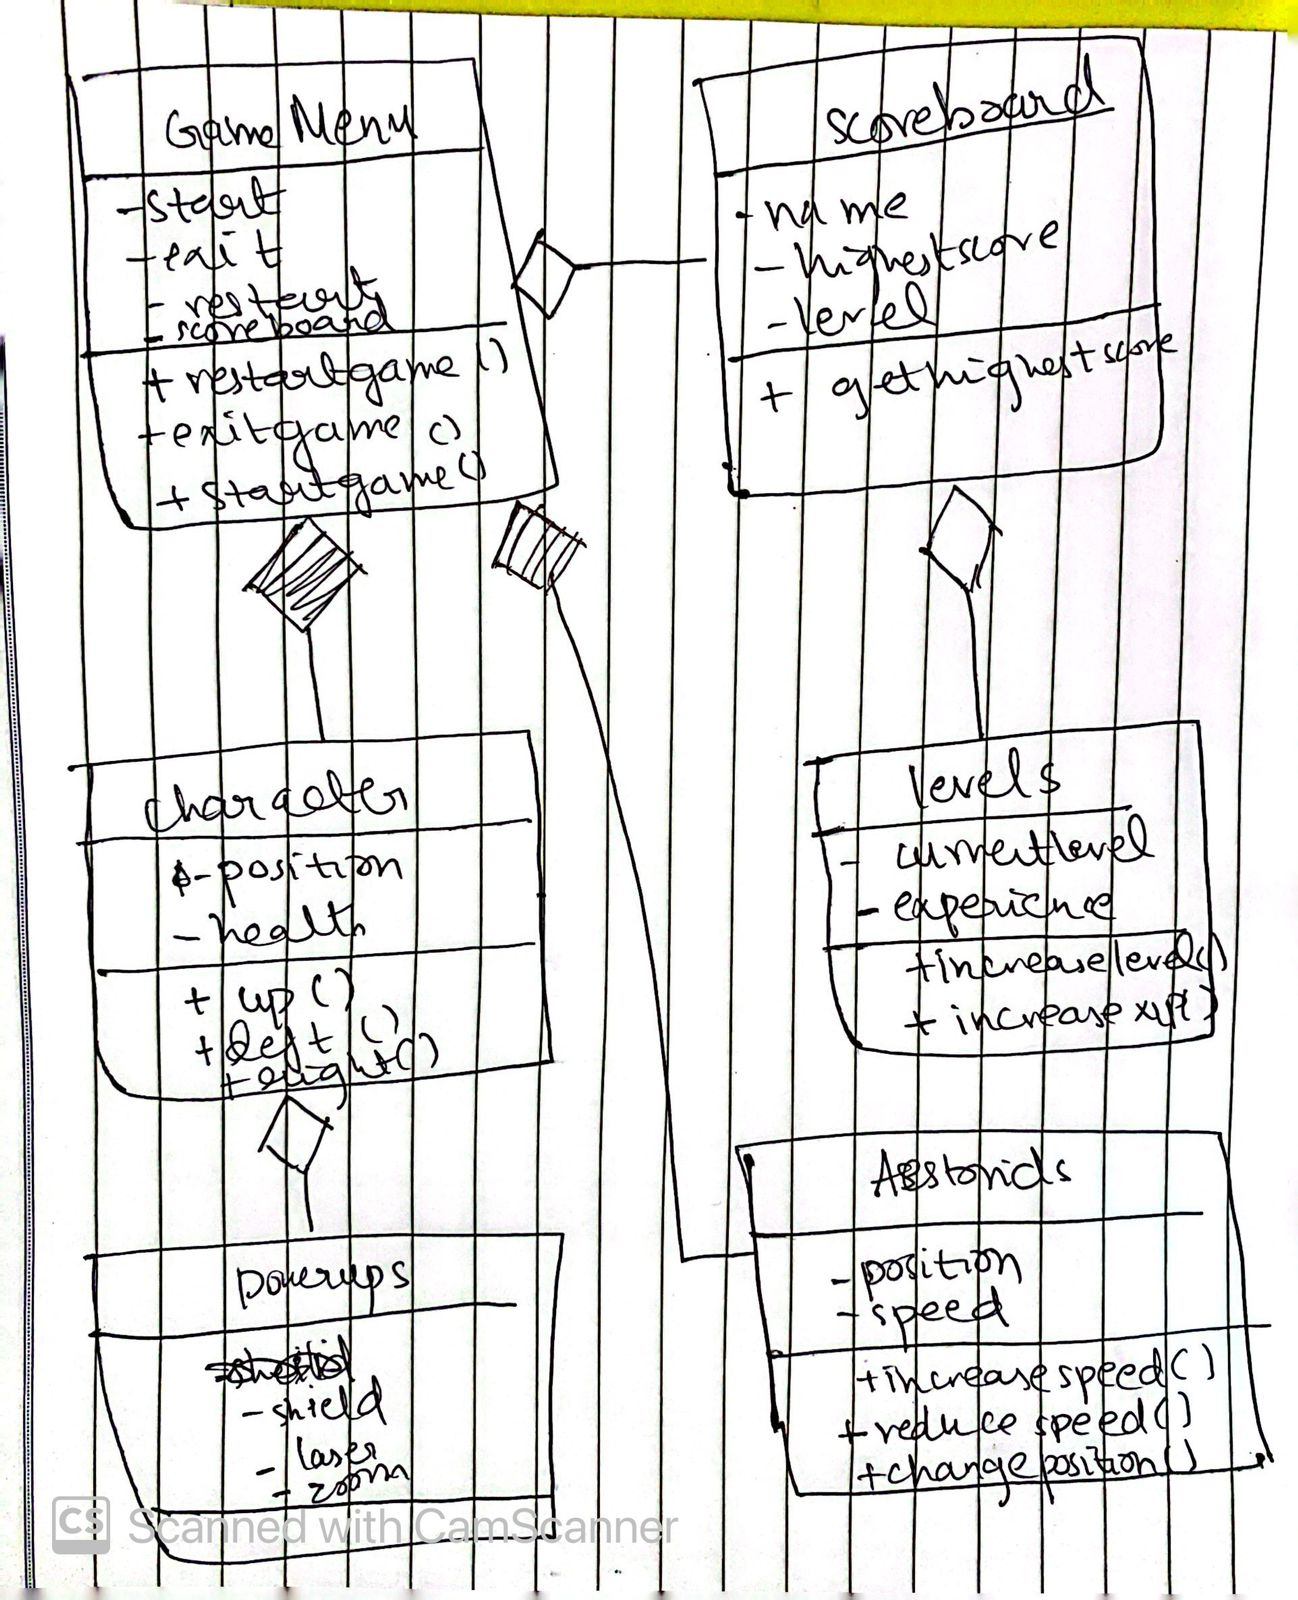 Game Menu
- start
- exit
- restart
- scoreboard
+ restartgame ()
+ exitgame ()
+ startgame ()
scoreboard
- name
- highestscore
- level
+ gethighestscore
character
- position
- health
+ up ()
+ left ()
+ right ()
levels
- currentlevel
- experience
+ increaselevel()
+ increase xp()
powerups
- shield
- laser
- zoom
- position
- speed
+ increase speed ()
+ reduce speed ()
+ change position ()
CS Scanned with CamScanner